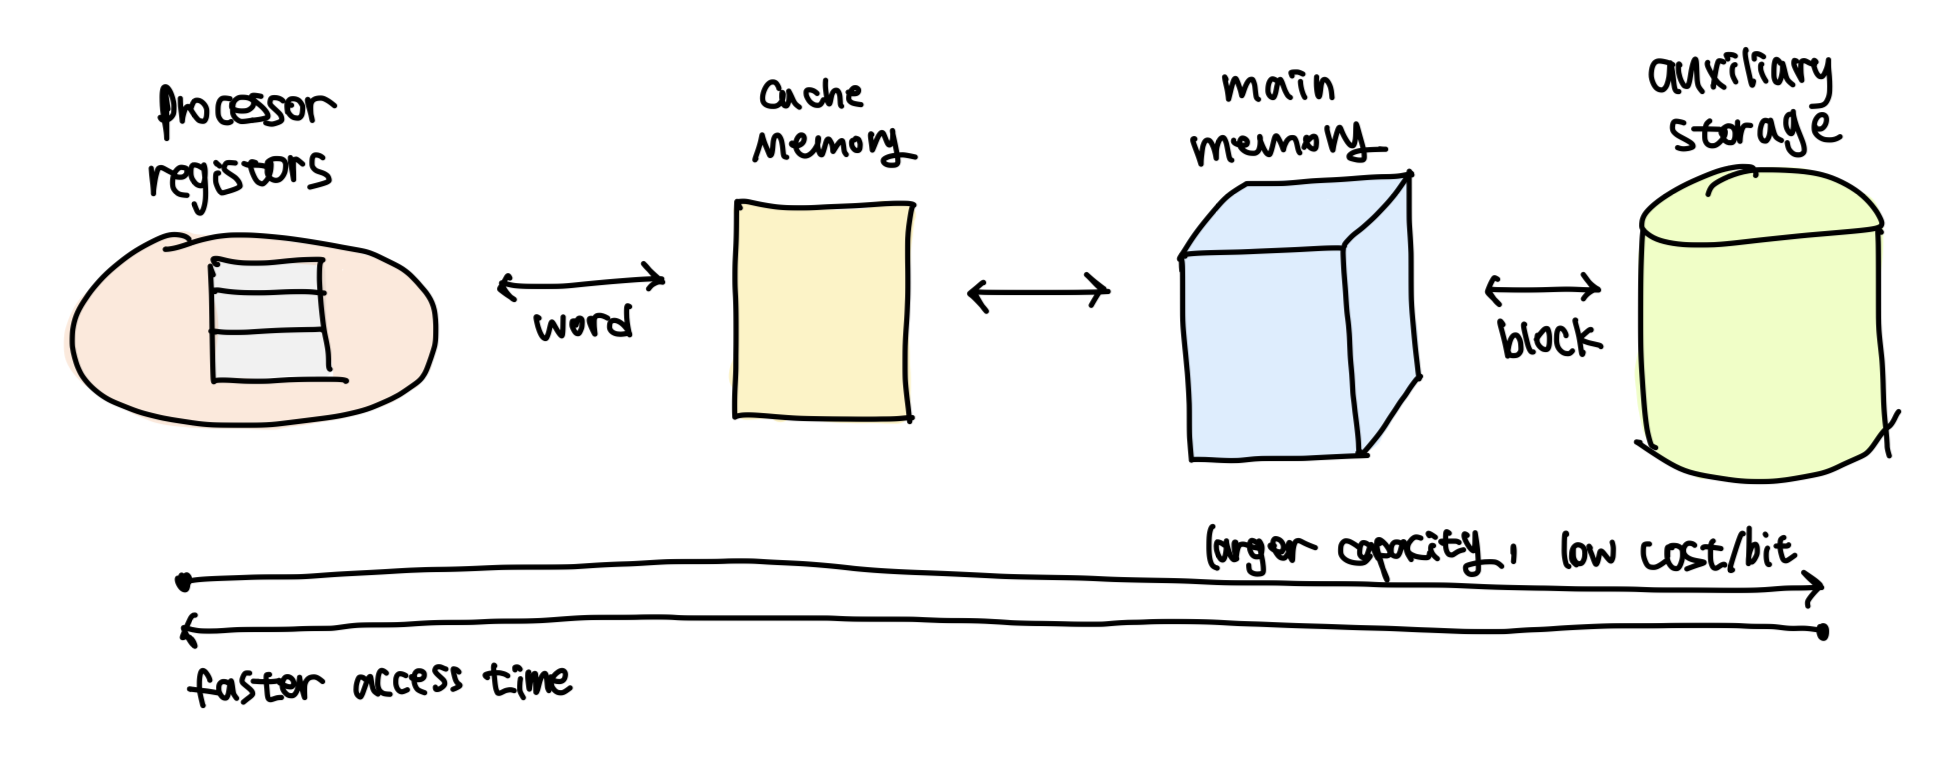 processor
registors
cache
memory
main
memory
auxiliary
storage
word
block
larger capacity, low cost/bit
faster access time